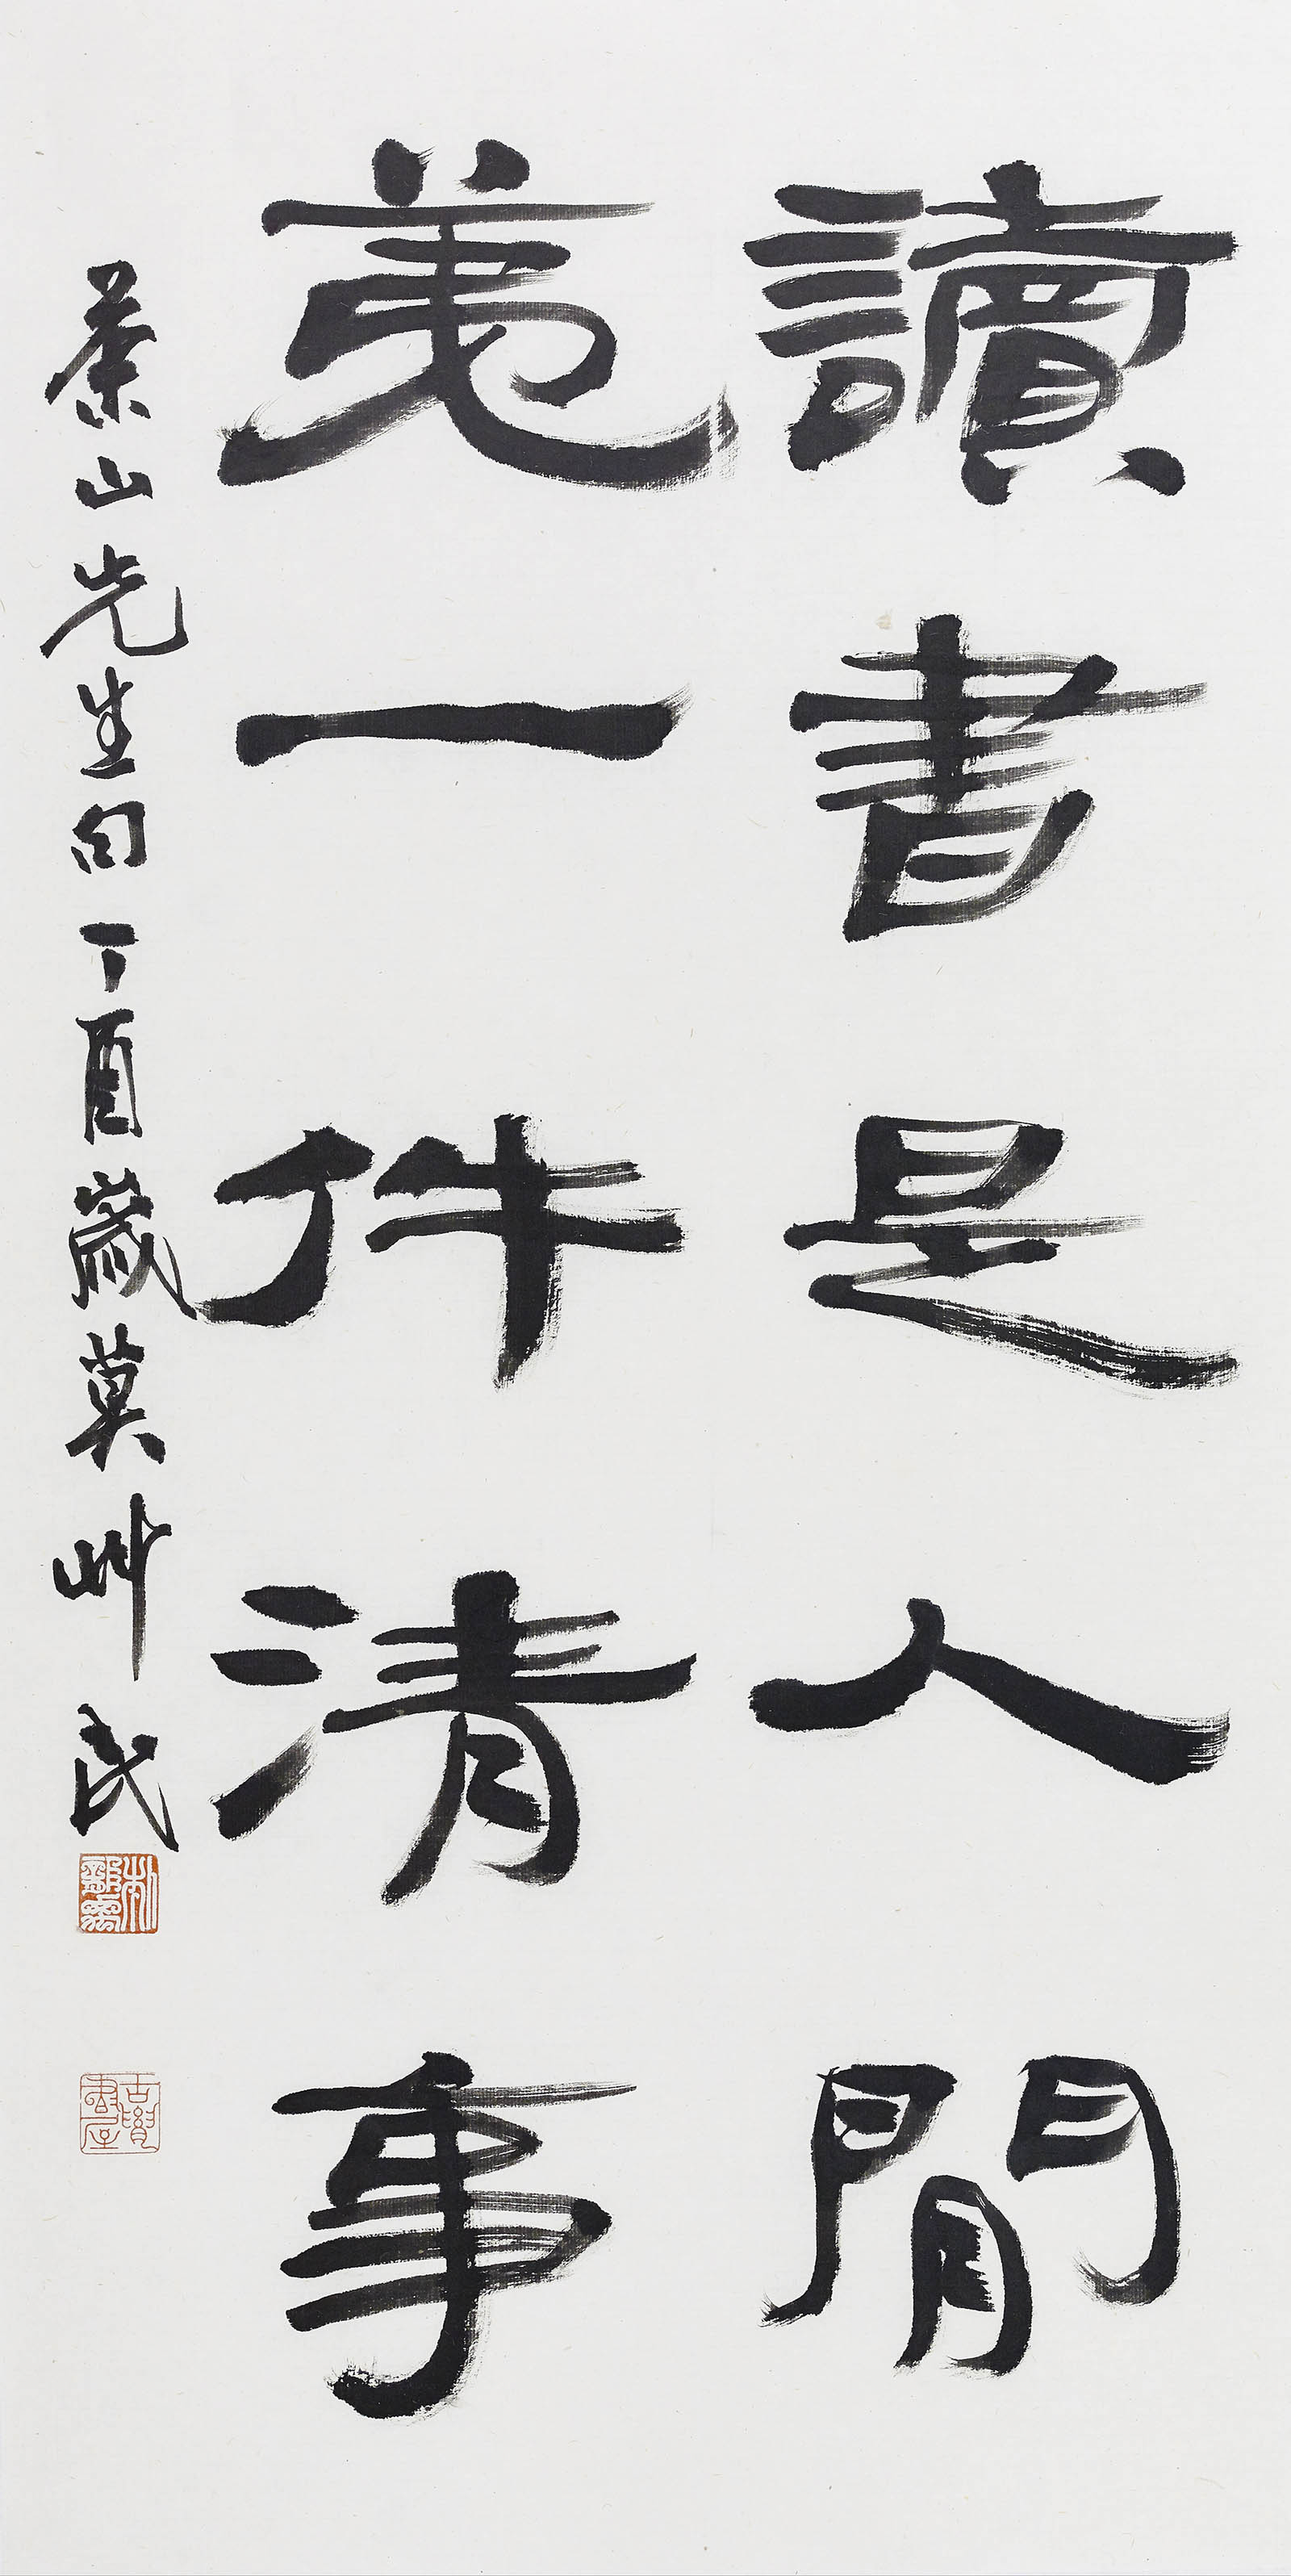 讀書是人間
第一件清事
茶山先生句丁酉歲莫艸民